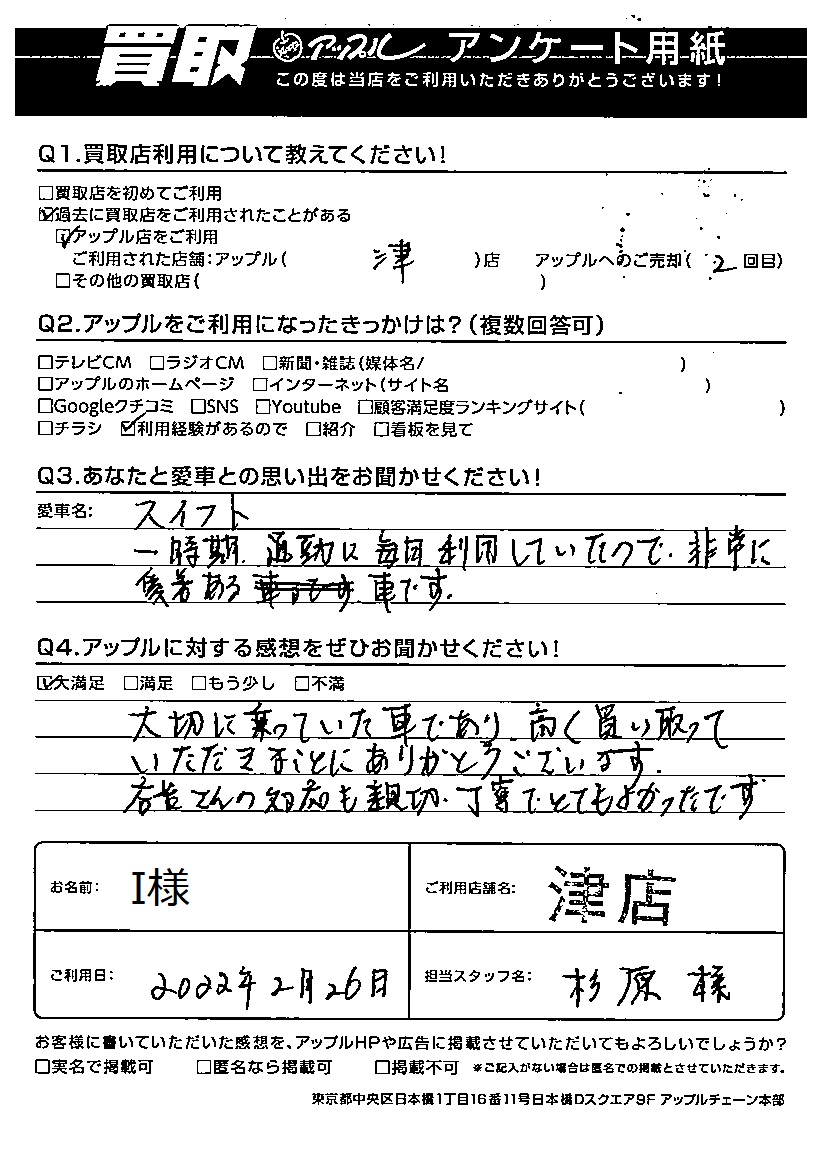 買取 アップル アンケート用紙
この度は当店をご利用いただきありがとうございます!
Q1.買取店利用について教えてください!
□買取店を初めてご利用
☑過去に買取店をご利用されたことがある
☑アップル店をご利用
ご利用された店舗:アップル( 津 )店 アップルへのご売却( 2 回目)
□その他の買取店( )
Q2.アップルをご利用になったきっかけは?(複数回答可)
□テレビCM □ラジオCM □新聞・雑誌(媒体名/ )
□アップルのホームページ □インターネット(サイト名 )
□Googleクチコミ □SNS □Youtube □顧客満足度ランキングサイト( )
□チラシ ☑利用経験があるので □紹介 □看板を見て
Q3.あなたと愛車との思い出をお聞かせください!
愛車名: スイフト
一時期、通勤に毎日利用していたので、非常に
愛着ある 車です。
Q4.アップルに対する感想をぜひお聞かせください!
☑大満足 □満足 □もう少し □不満
大切に乗っていた車であり、高く買い取って
いただきまことにありがとうございます。
店員さんの対応も親切、丁寧でとてもよかったです
お名前: I様
ご利用店舗名: 津店
ご利用日: 2022年2月26日
担当スタッフ名: 杉原 様
お客様に書いていただいた感想を、アップルHPや広告に掲載させていただいてもよろしいでしょうか?
□実名で掲載可 □匿名なら掲載可 □掲載不可 ※ご記入がない場合は匿名での掲載とさせていただきます。
東京都中央区日本橋1丁目16番11号日本橋Dスクエア9F アップルチェーン本部